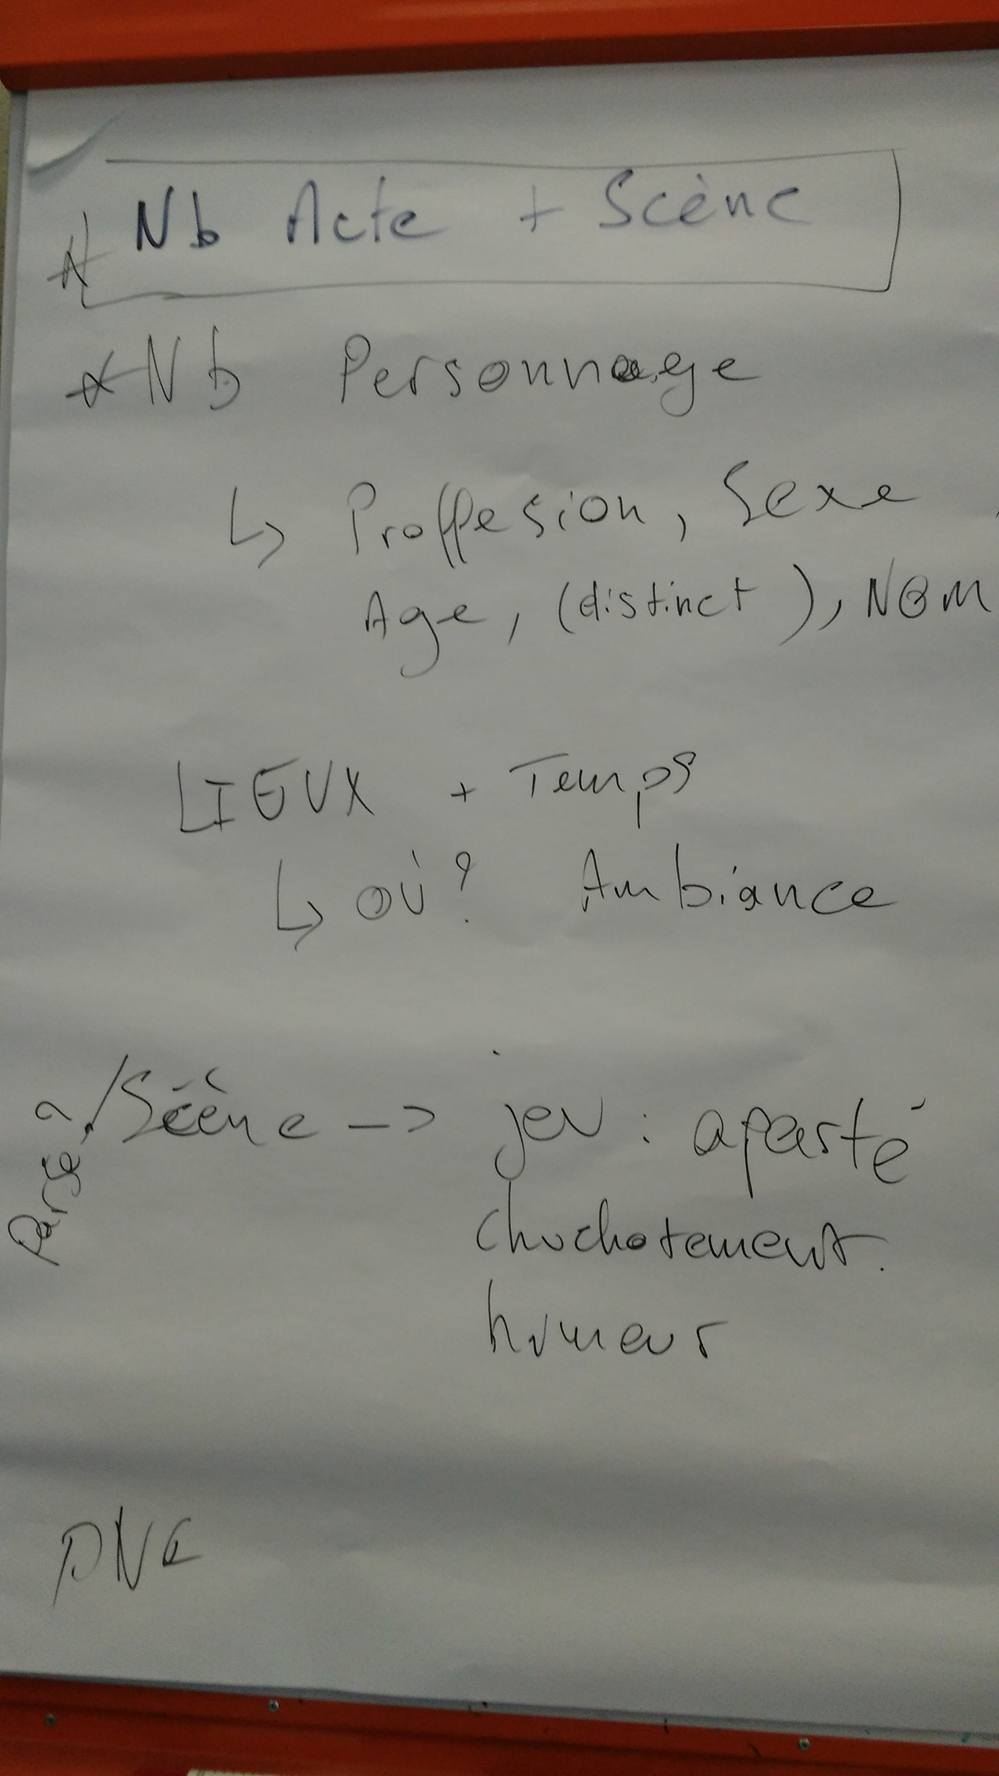 * Nb Acte + Scène
* Nb Personnage
↳ Proffesion, Sexe,
Age, (distinct), NOM
LIEUX + Temps
↳ OÙ? Ambiance
/Scène -> jeu : aparté
chuchotement.
humeur